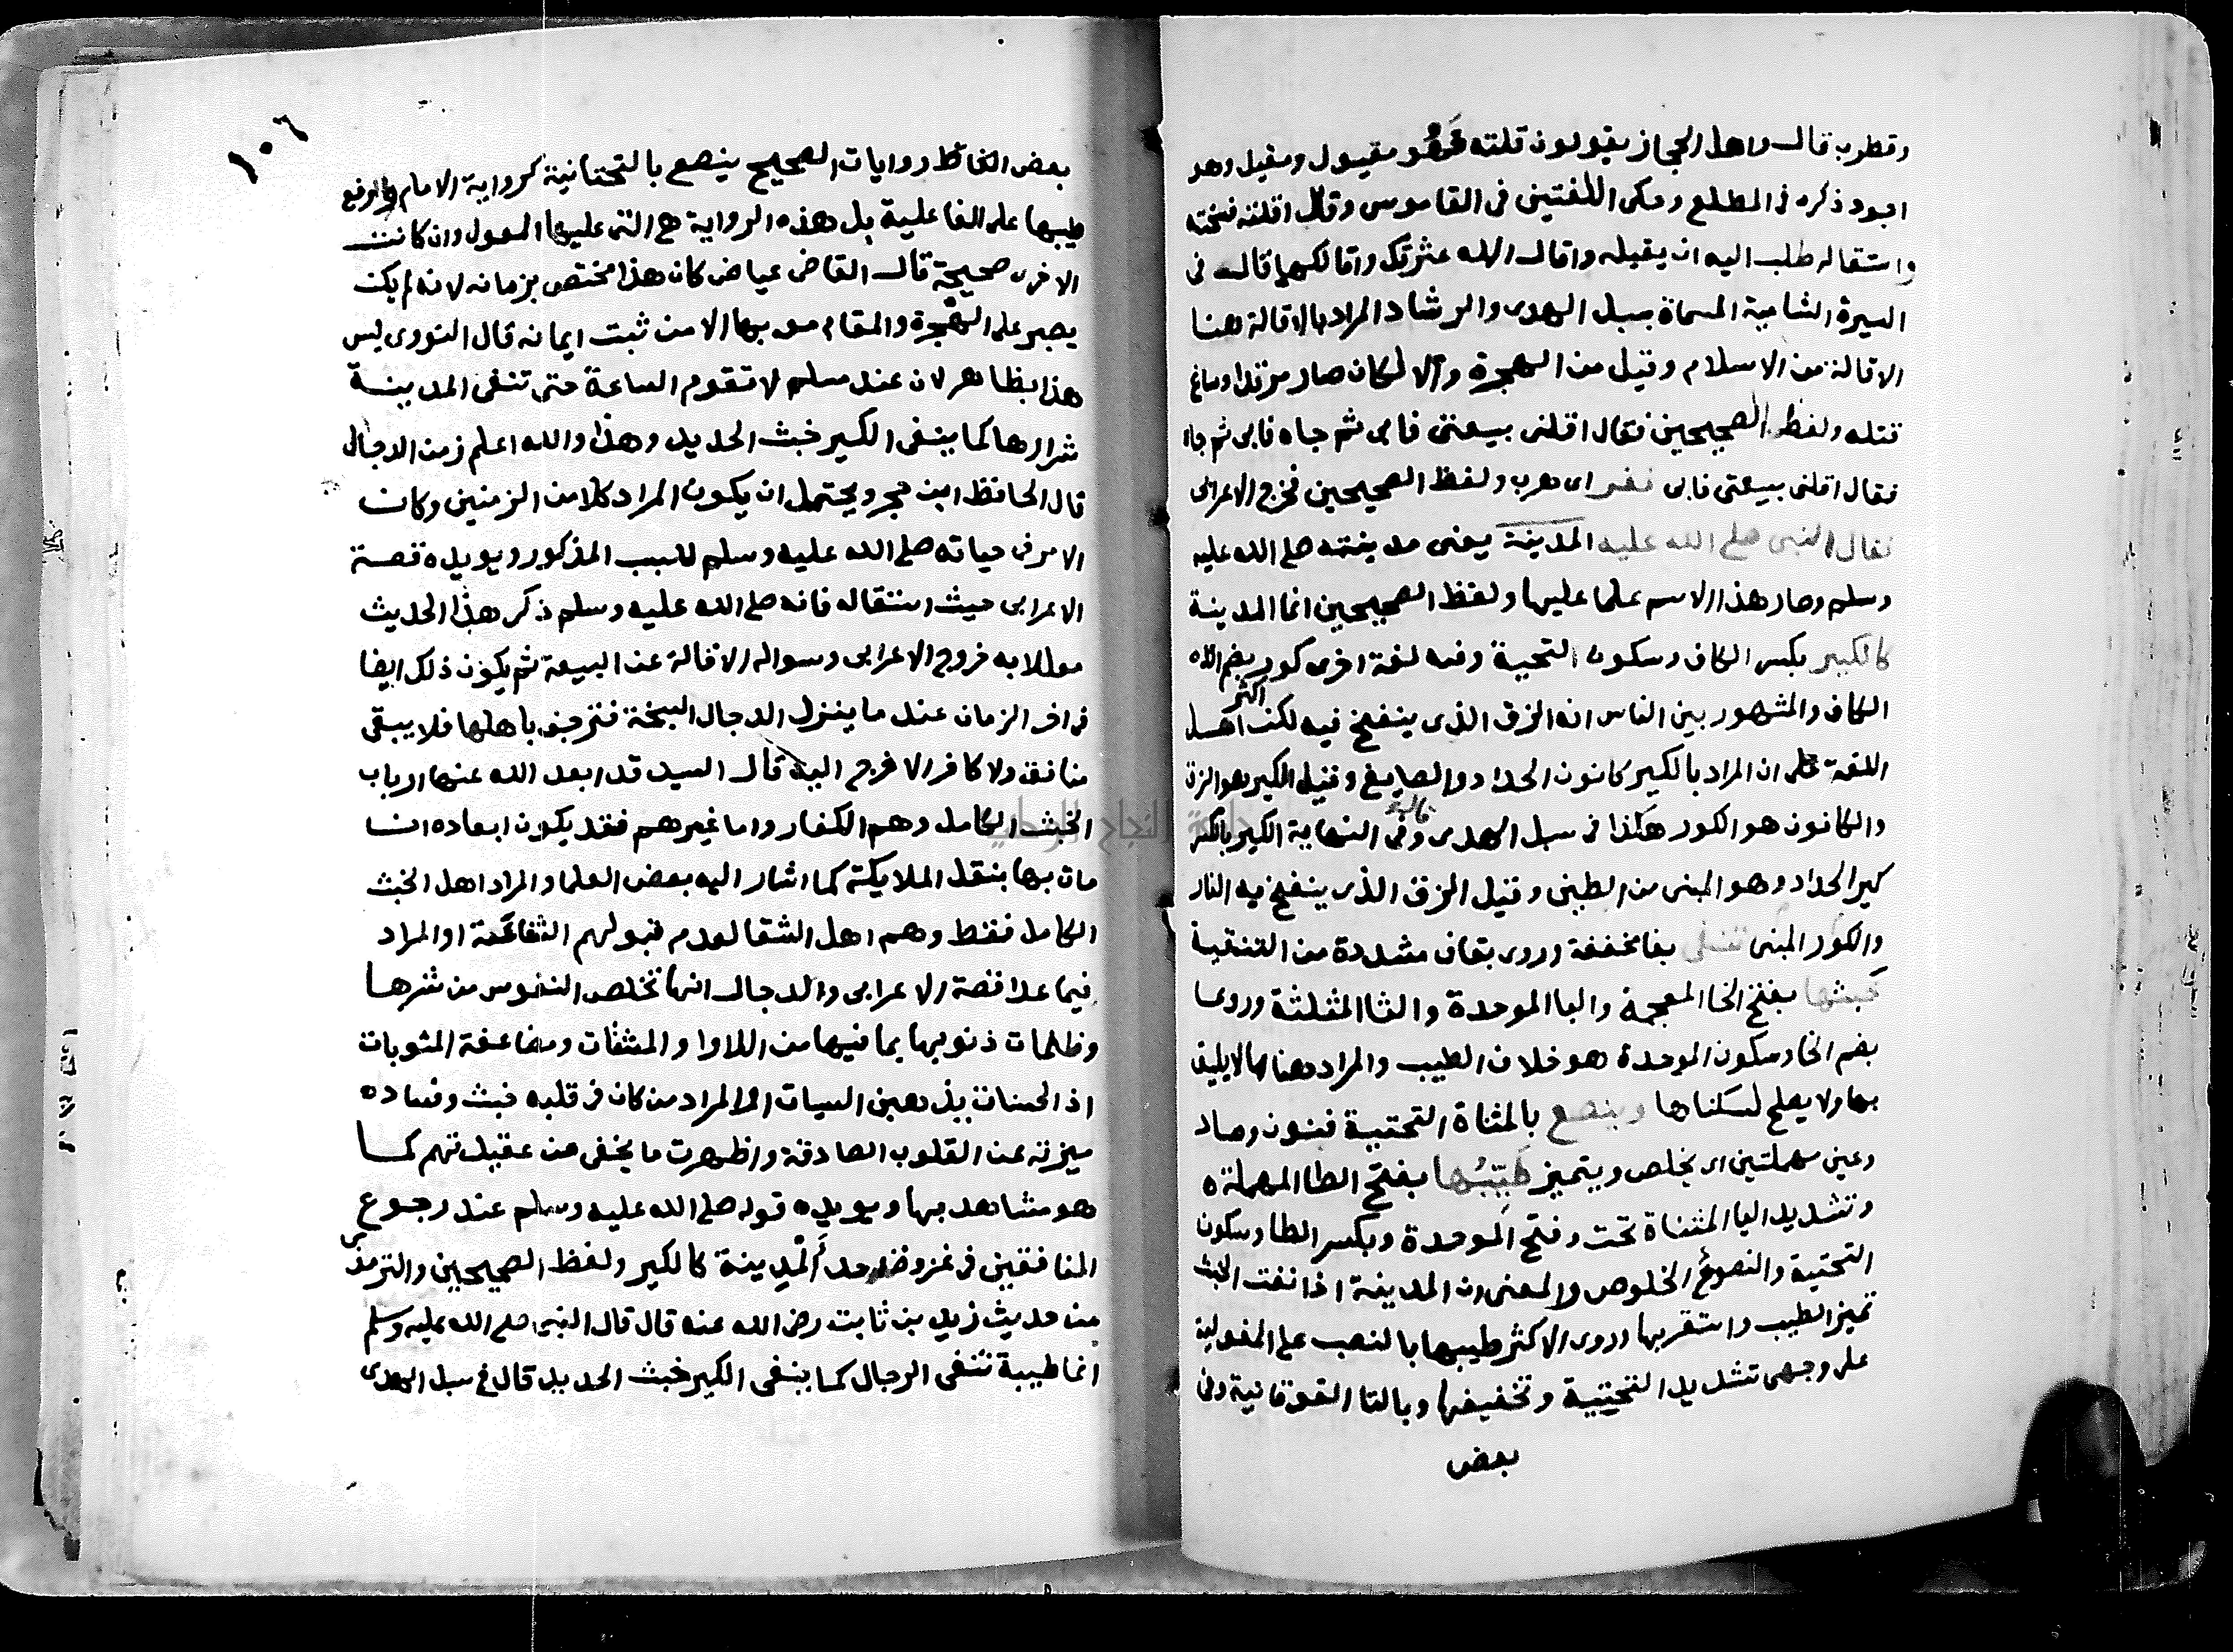 وقطرب قال واهل الحجاز يقولون قلته فهو مقيول ومقيل وهو
اجود ذكره في المطلع وحكى اللغتين في القاموس وقال اقلته فسخته
واستقاله طلب اليه ان يقيله واقال الله عثرتك واقالكها قال في
السيرة الشامية المسماة بسبل الهدى والرشاد المراد بالاقالة هنا
الاقالة من الاسلام وقيل من الهجرة والا لكان صار مرتدا وساغ
قتله ولفظ الصحيحين فقال اقلني بيعتي فابى ثم جاه فابى ثم جاه
فقال اقلني بيعتي فابى ففر اى هرب ولفظ الصحيحين فخرج الاعرابي
فقال النبي صلى الله عليه المدينة يعني مدينته صلى الله عليه
وسلم وصار هذا الاسم علما عليها ولفظ الصحيحين انما المدينة
كالكير بكسر الكاف وسكون التحية وفيه لغة اخرى كور بضم
الكاف والمشهور بين الناس انه الزق الذى ينفخ فيه لكن اكثر اهل
اللغة على ان المراد بالكير كانون الحداد والصايغ وقيل الكير هو الزق
والكانون هو الكور هكذا في سبل الهدى وفى النهاية الكير بالكسر
كير الحداد وهو المبنى من الطين وقيل الزق الذى ينفخ به النار
والكور المبنى تنفى بفا مخففة وروى بقاف مشددة من التنقية
خبثها بفتح الخا المعجمة والبا الموحدة والثا المثلثة وروى
بضم الخا وسكون الموحدة هو خلاف الطيب والمراد هنا ما لا يليق
بها ولا يصلح لسكناها وينصع بالمثناة التحتية فنون وصاد
وعين مهملتين اى يخلص ويتميز طيبها بفتح الطا المهملة
وتشديد اليا المثناة تحت وفتح الموحدة وبكسر الطا وسكون
التحتية والنصوع الخلوص والمعنى ان المدينة اذا نفت الخبث
تميز الطيب واستقر بها وروى الاكثر طيبها بالنصب على المفعولية
على وجهى تشديد التحتية وتخفيفها وبالتا الفوقانية وفى
بعض
١٠٦
بعض الفاظ روايات الصحيح ينصع بالتحتانية كرواية الامام والرفع
طيبها على الفاعلية بل هذه الرواية هي التي عليها المعول وان كانت
الاخرى صحيحة قال القاضي عياض كان هذا مختص بزمانه لانه لم يكن
يصبر على الهجرة والمقام معه بها الا من ثبت ايمانه قال النووى ليس
هذا بظاهر لان عند مسلم لا تقوم الساعة حتى تنفى المدينة
شرارها كما ينفى الكير خبث الحديد وهذا والله اعلم زمن الدجال
قال الحافظ ابن حجر ويحتمل ان يكون المراد كلا من الزمنين وكان
الامر في حياته صلى الله عليه وسلم للسبب المذكور ويويده قصة
الاعرابي حيث استقاله فانه صلى الله عليه وسلم ذكر هذا الحديث
معللا به خروج الاعرابي وسواله الاقالة عن البيعة ثم يكون ذلك ايضا
في اخر الزمان عند ما ينزل الدجال السبخة فترجف باهلها فلا يبقى
منافق ولا كافر الا خرج اليه قال السيد قد ابعد الله عنها ارباب
الخبث الكامل وهم الكفار واما غيرهم فقد يكون ابعاده ان
مات بها بنقل الملايكة كما اشار اليه بعض العلما والمراد اهل الخبث
الكامل فقط وهم اهل الشقا لعدم قبولهم الشفاعة او المراد
فيما عدا قصة الاعرابي والدجال انها تخلص النفوس من شرها
وظلمات ذنوبها بما فيها من اللاوا والمشقات ومضاعفة المثوبات
اذ الحسنات يذهبن السيات او المراد من كان في قلبه خبث وفساده
ميزته عن القلوب الصادقة واظهرت ما يخفى من عقيدتهم كما
هو مشاهد بها ويويده قوله صلى الله عليه وسلم عند رجوع
المنافقين في غزوة احد المدينة كالكير ولفظ الصحيحين والترمذى
من حديث زيد بن ثابت رضى الله عنه قال قال النبي صلى الله عليه وسلم
انها طيبة تنفى الرجال كما ينفى الكير خبث الحديد قال في سبل الهدى